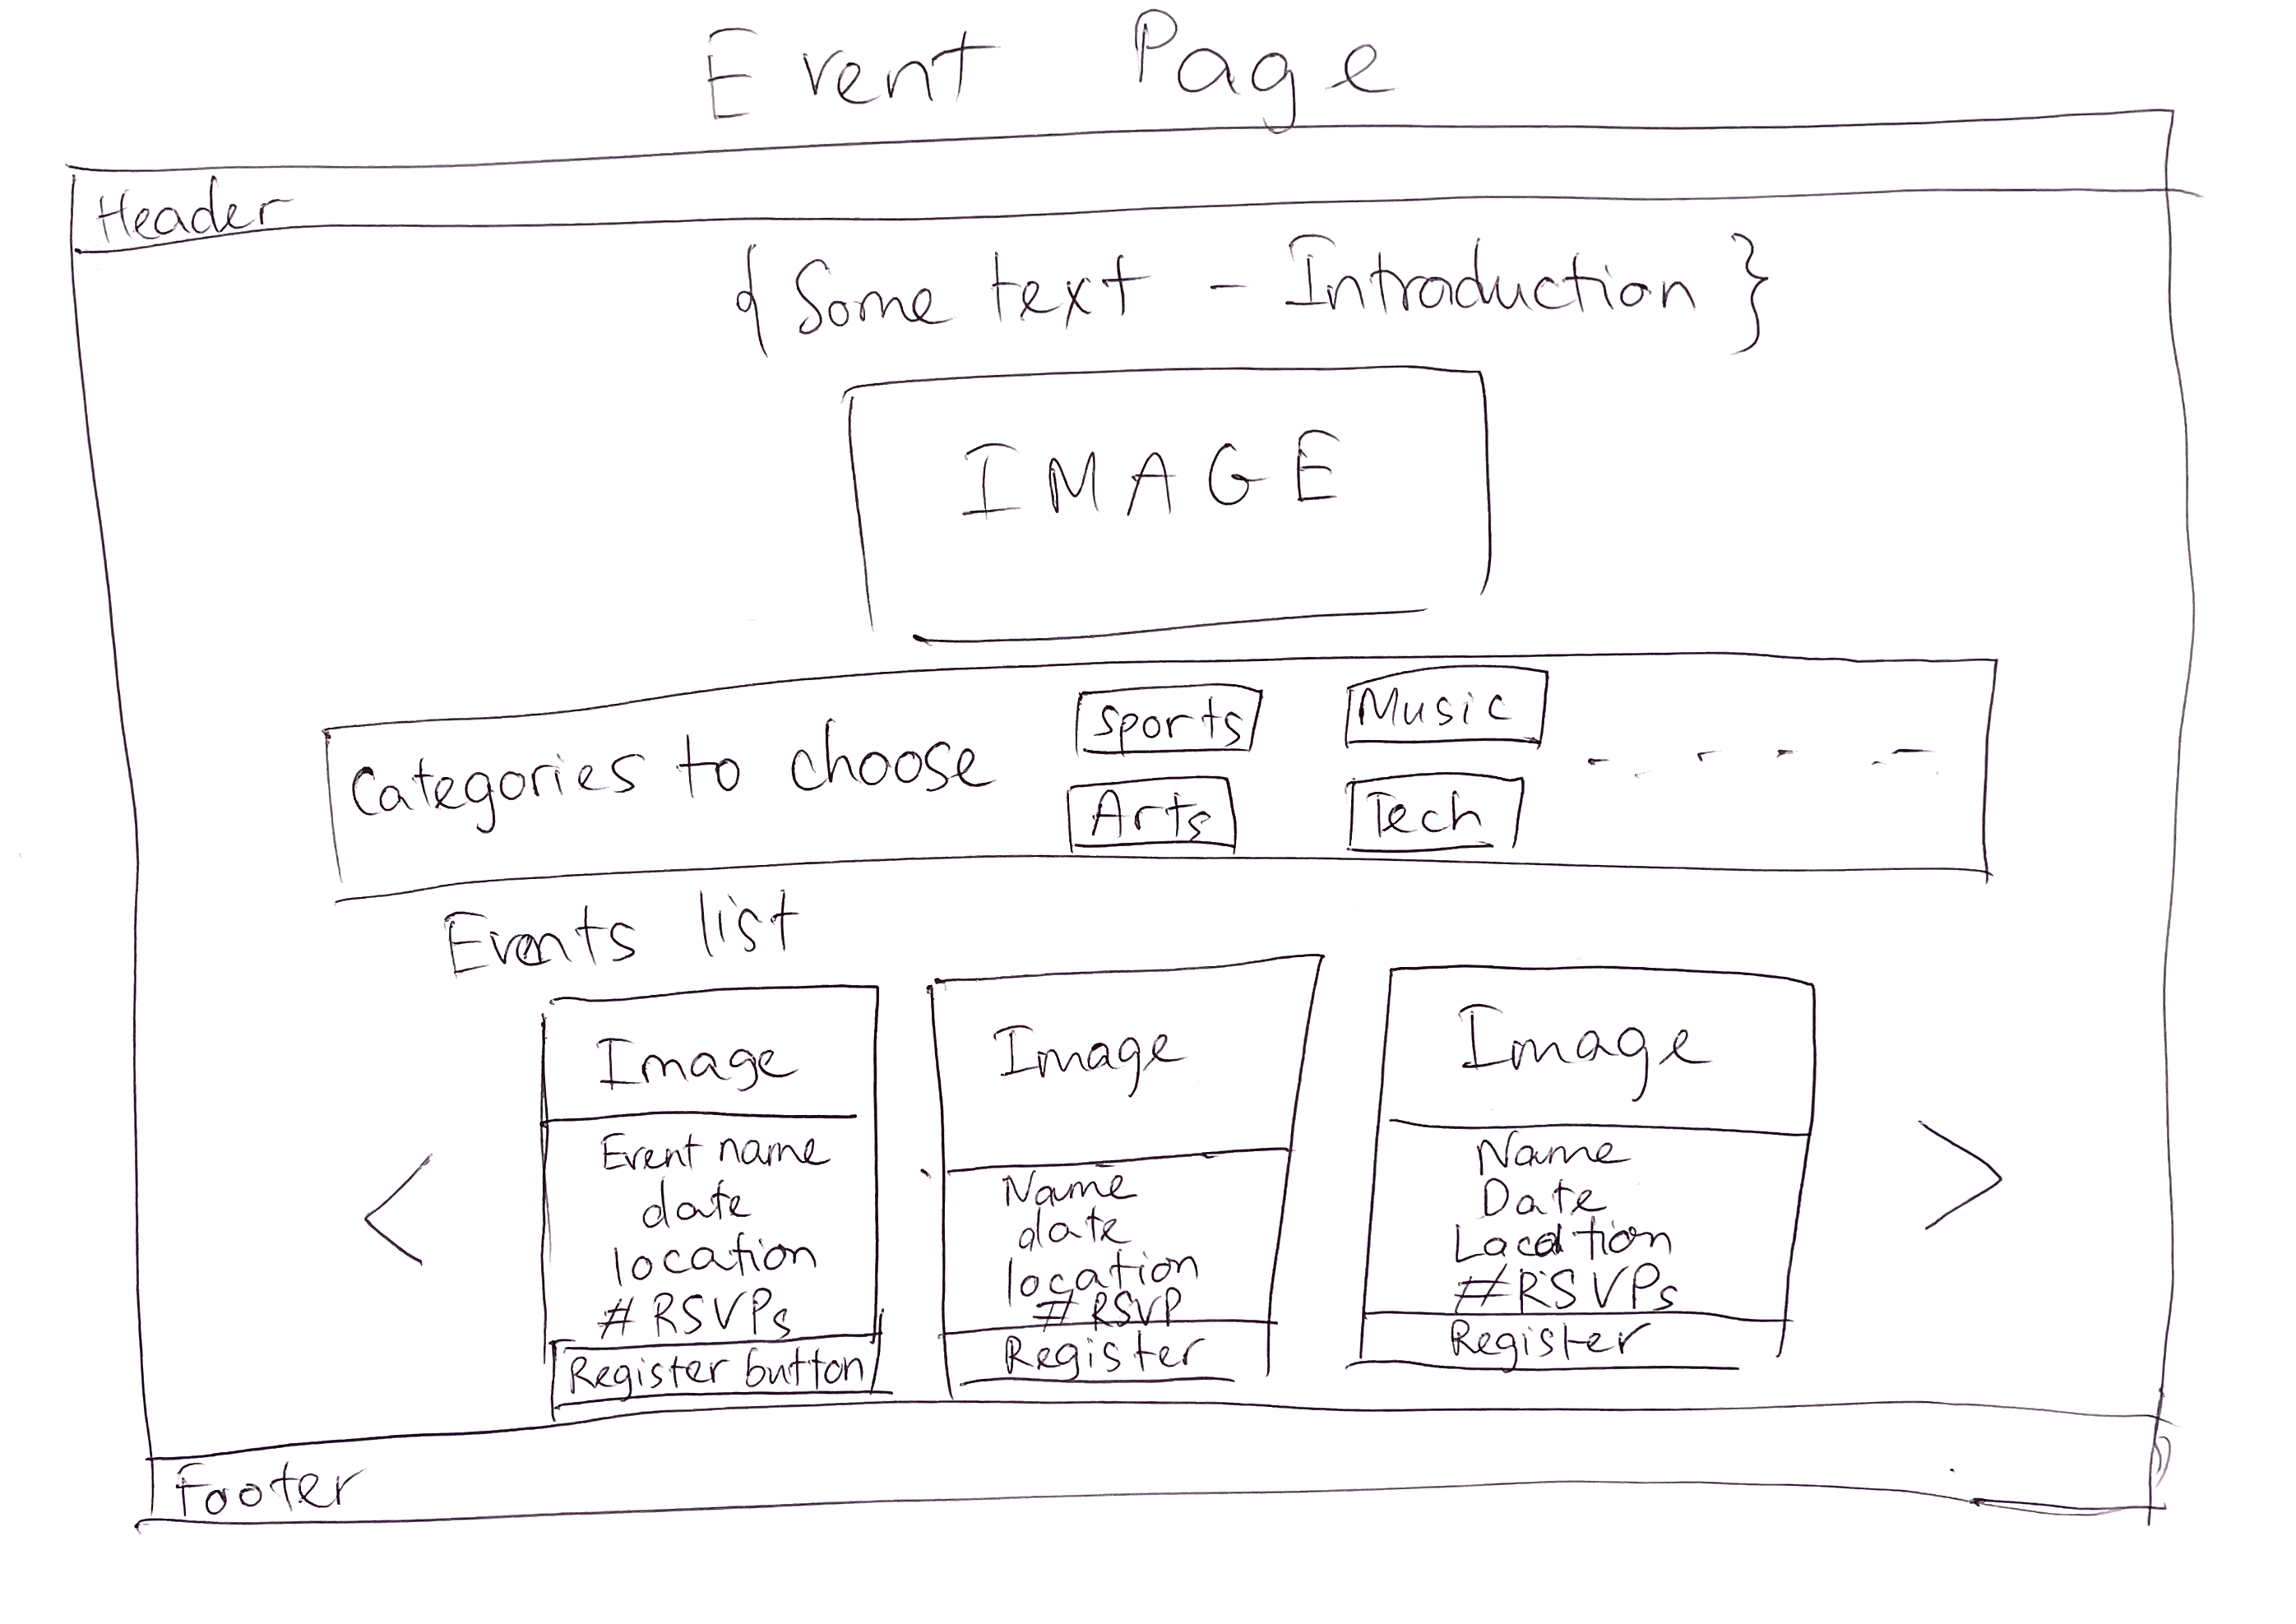 Event Page
Header
{ Some text - Introduction }
IMAGE
Categories to choose
Sports
Music
Arts
Tech
- - - - -
Events list
Image
Event name
date
location
# RSVPs
Register button
Image
Name
date
location
# RSVP
Register
Image
Name
Date
Lacation
#RSVPs
Register
<
>
Footer